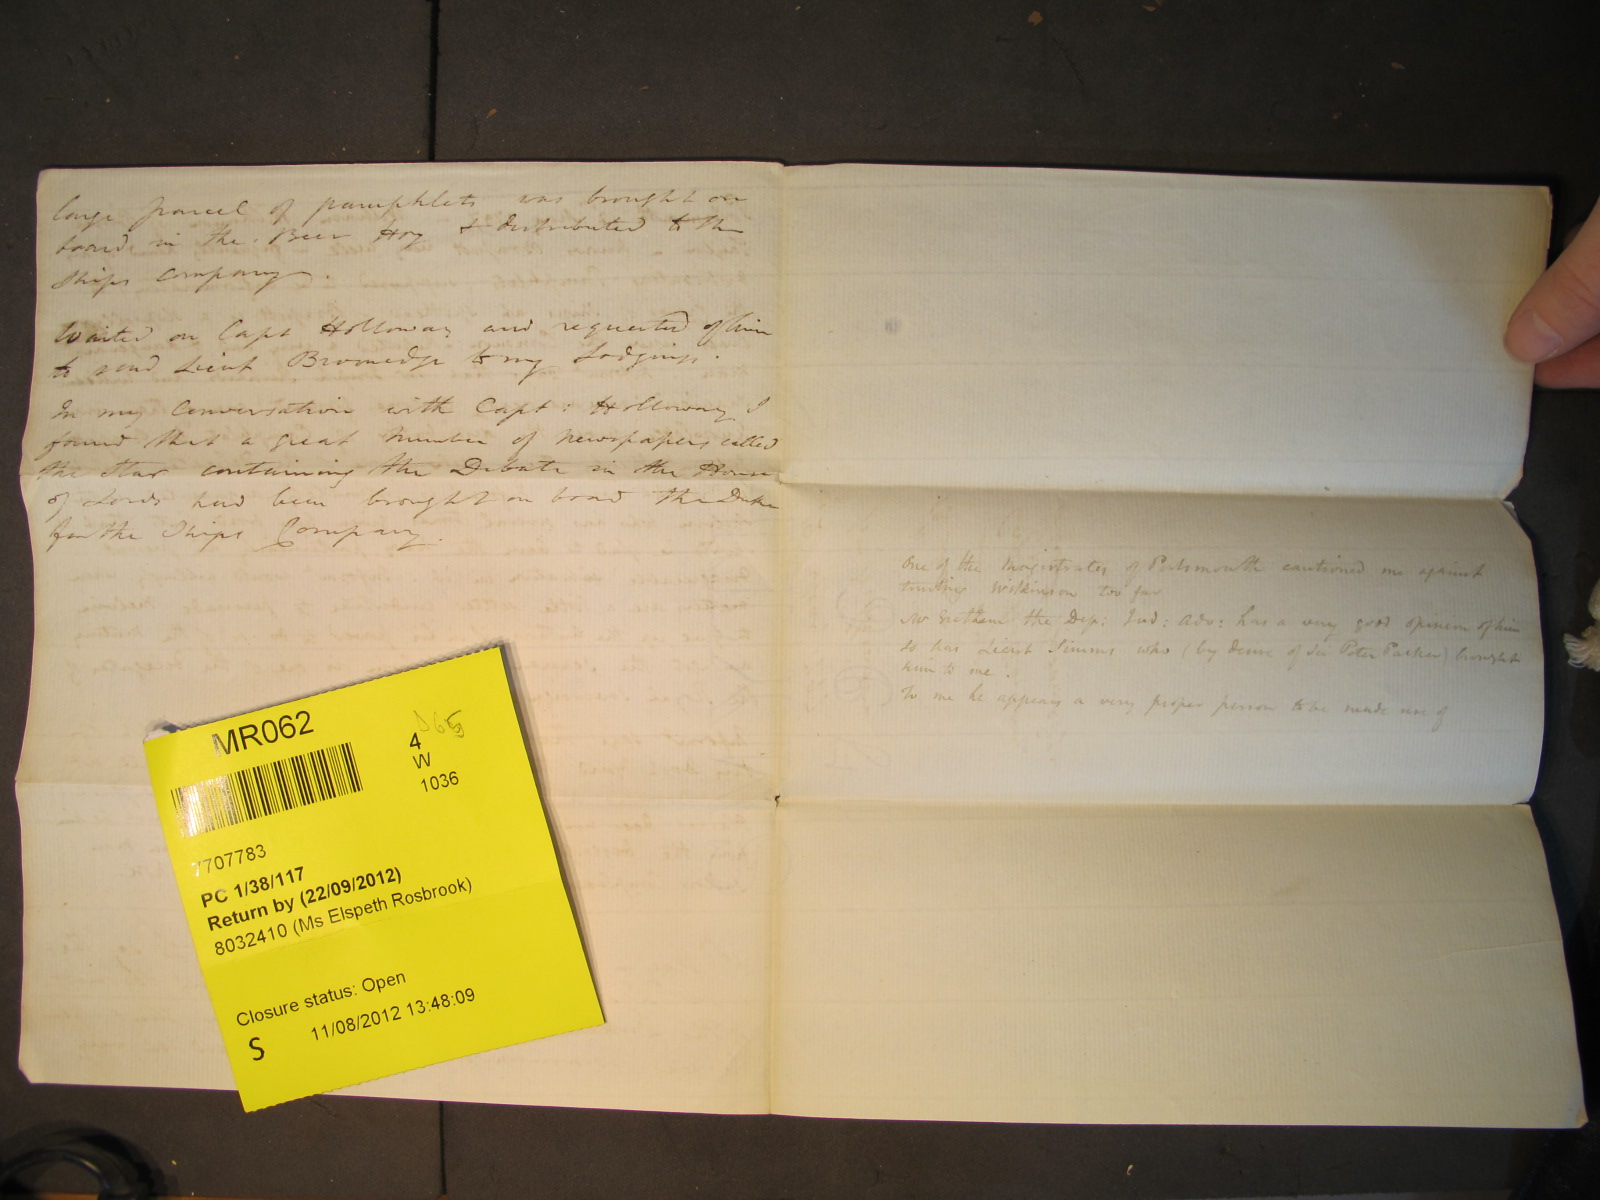 large parcel of pamphlets was brought on
board in the Beer Hoy & distributed to the
Ships Company.
Waited on Capt Holloway and requested of him
to send Lieut Bromedge to my Lodgings.
In my Conversation with Capt: Holloway I
found that a great number of newspapers called
the Star containing the Debate in the House
of Lords had been brought on board the Duke
for the Ships Company.
One of the Magistrates of Portsmouth cautioned me against
trusting Wilkinson too far
Mr the Dep: Jud: Adv: has a very good opinion of him
so has Lieut Simms who (by desire of Sir Peter Parker) brought
him to me.
To me he appears a very proper person to be made use of
MR062
4
W
1036
7707783
PC 1/38/117
Return by (22/09/2012)
8032410 (Ms Elspeth Rosbrook)
Closure status: Open
S 11/08/2012 13:48:09